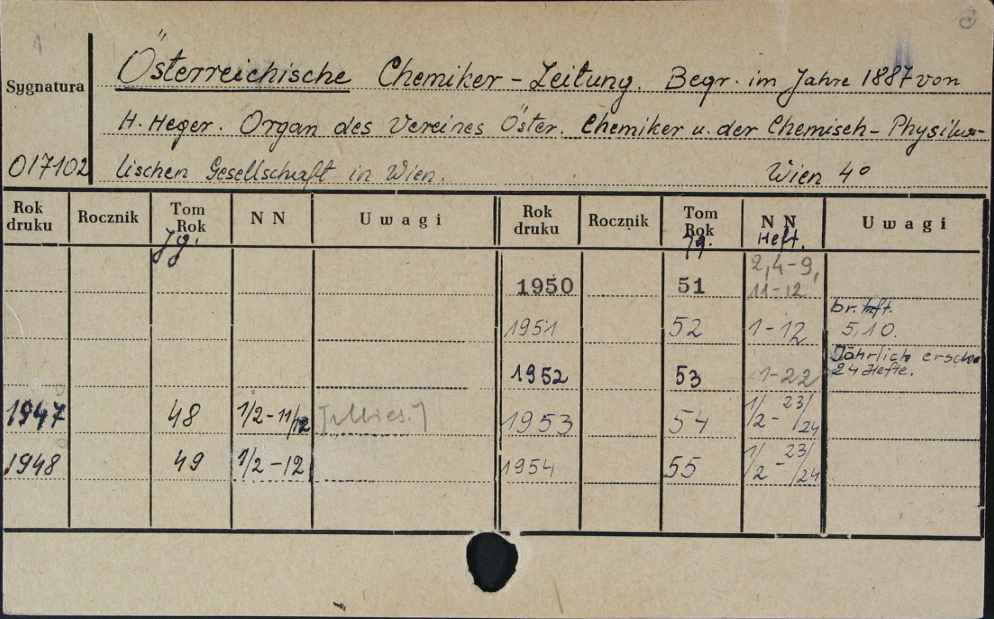 Sygnatura
017102
Österreichische Chemiker-Zeitung. Begr. im Jahre 1887 von
H. Heger. Organ des Vereines Öster. Chemiker u. der Chemisch-Physika-
lischen Gesellschaft in Wien. Wien 4°
Rok druku Rocznik Tom Rok NN Uwagi Rok druku Rocznik Tom Rok NN Uwagi
Jg. Jg. Heft.
1950 51 2,4-9, 11-12
1951 52 1-12 br. Hft. 5,10.
1952 53 1-22 Jährlich ersch. 24 Hefte.
1947 48 1/2-11/12 1953 54 1/2-23/24
1948 49 1/2-12 1954 55 1/2-23/24